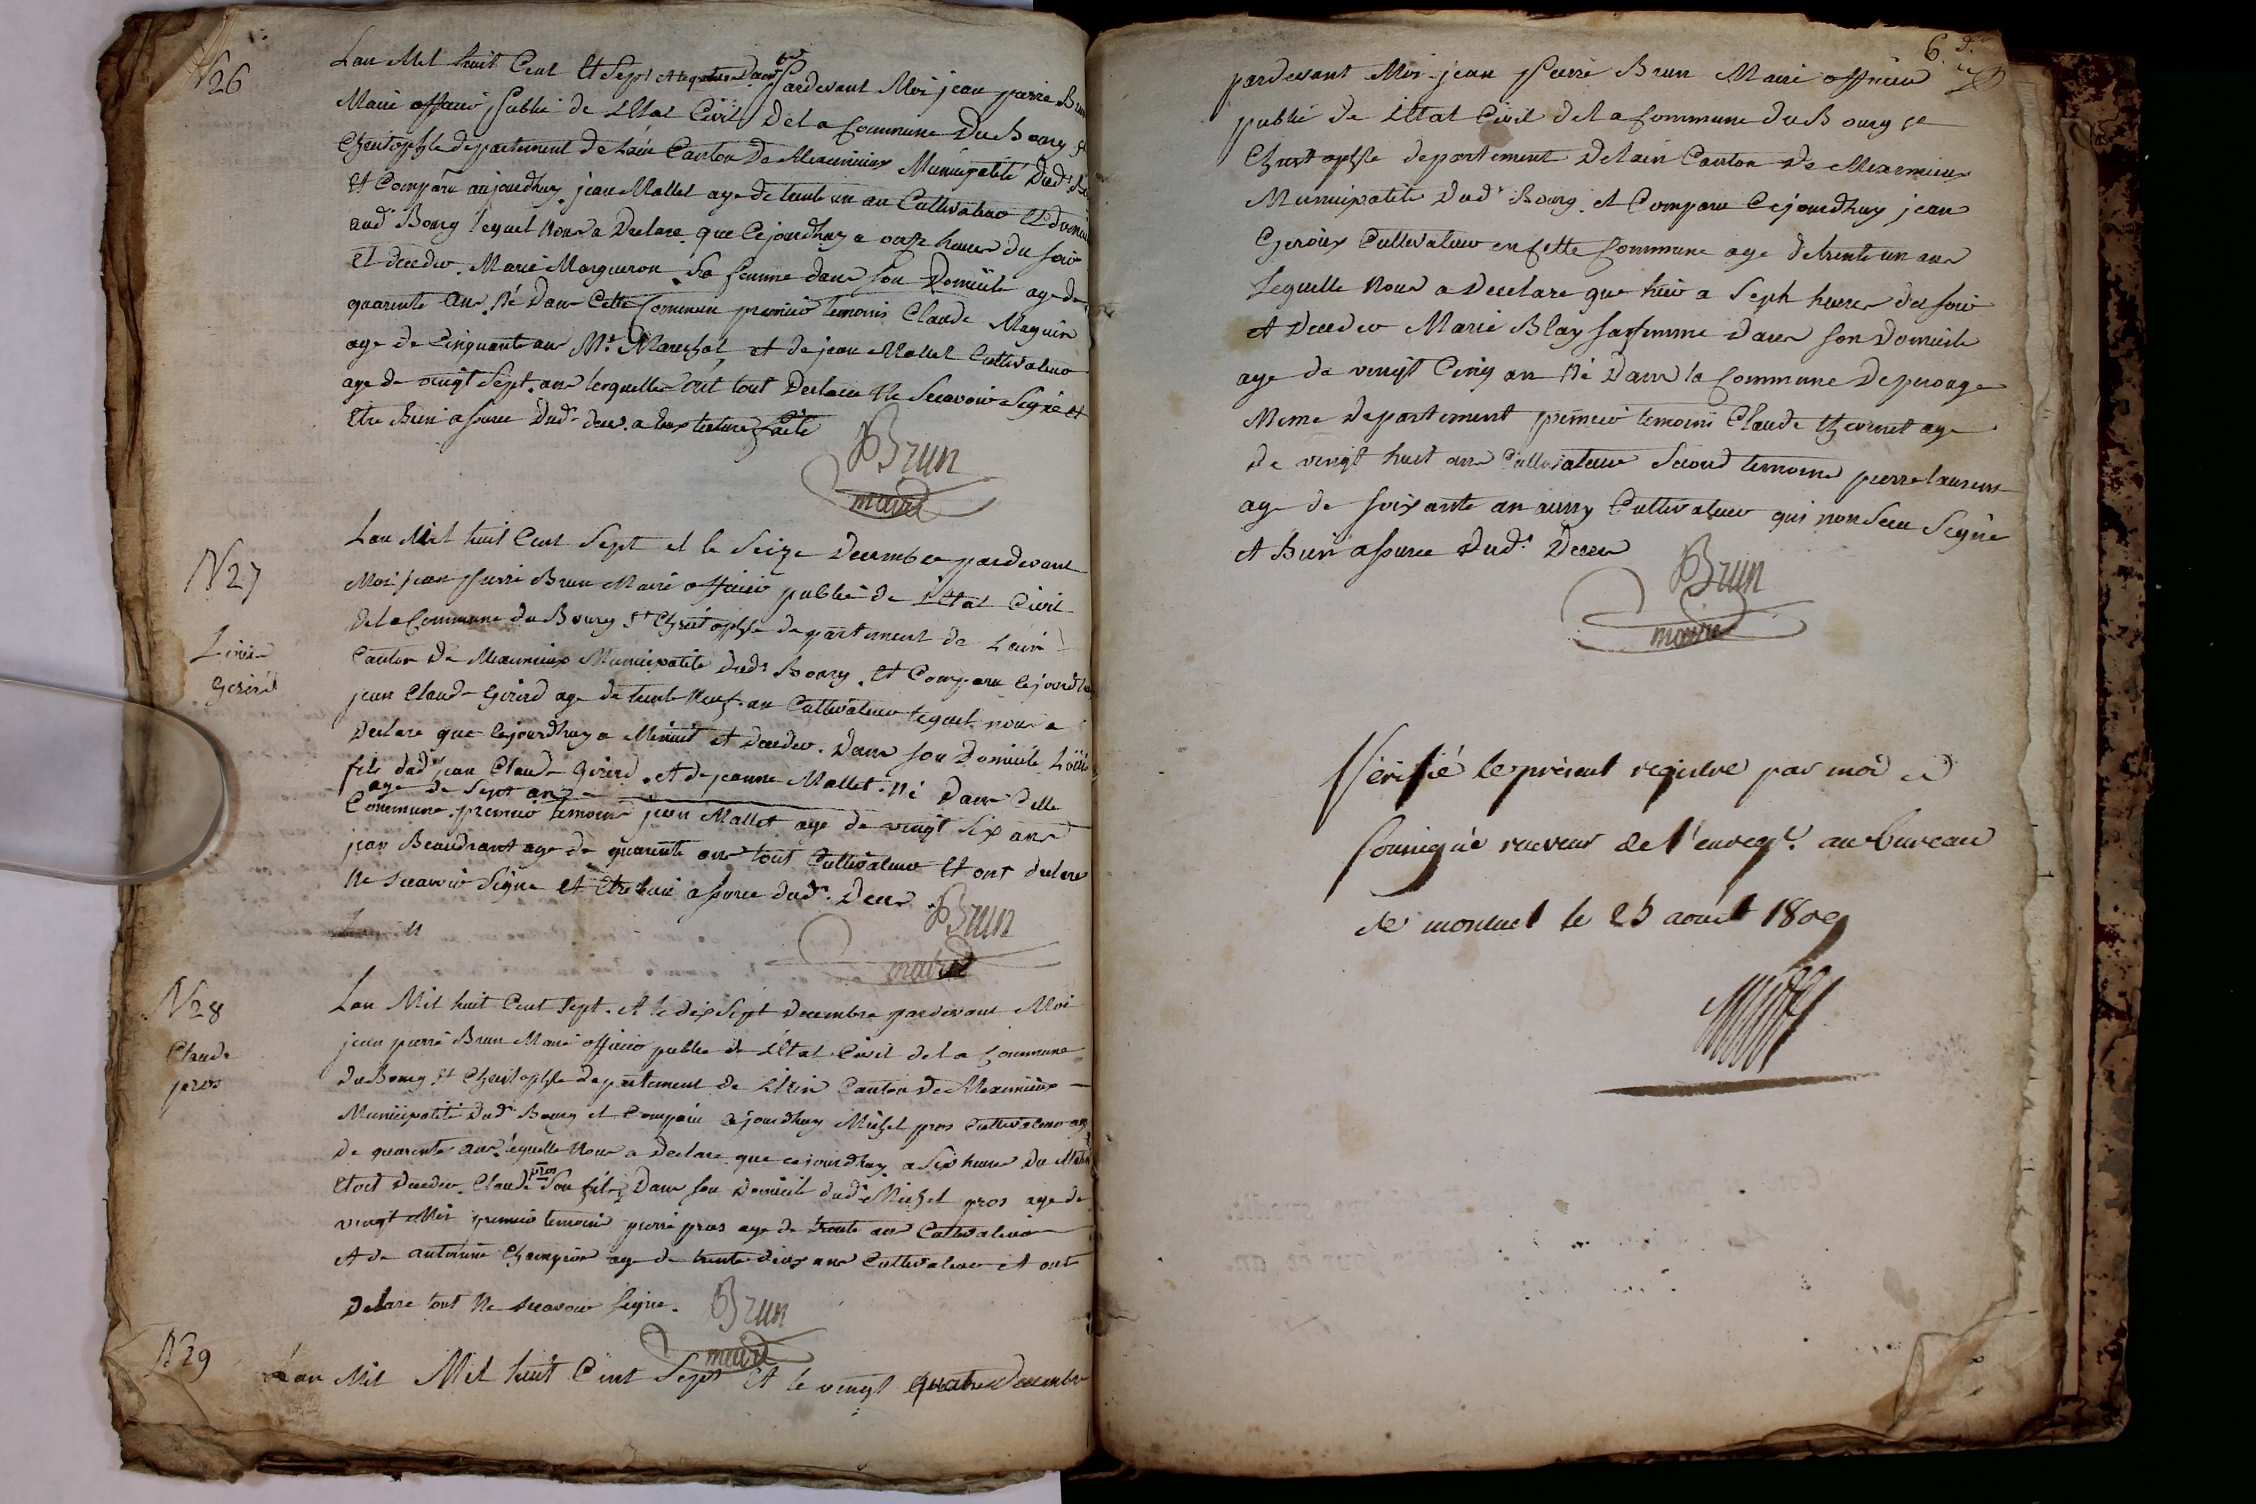 N 26
Lan Mil huit Cent Et Sept et le quatorze Decembre Pardevant Moi jean pierre Brun
Maire officier Public de L'Etat Civil De la Commune Du Bourg St
Christophle departement de Lain Canton De Meximieux Municipalité Dudt Bourg
Et Comparu aujourdhuy jean Mallet age de trente un an Cultivateur Et Domicilié
audt Bourg lequel Nous a Declare que Cejourdhuy a onze heures du soir
Et decedee Marie Margueron sa femme dans son Domicile age de
quarente ans Né Dans Cette Commune premier temoins Claude Maguin
age de Cinquante an Md Marechal et de jean Mallet Cultivateur
age de vingt Sept ans lesquelles ont tout Declare Ne Scavoir Signé et
Etre Bien assure Dudt deces a eux lecture faite
Brun
maire
N 27
Louis
Gerird
Lan Mil huit Cent Sept et le Seize Decembre pardevant
Moi jean pierre Brun Maire officier public de L'Etat Civil
de la Commune du Bourg St Christophle departement de Lain
Canton De Meximieux Municipalite Dudt Bourg. Et Comparu Cejourdhuy
jean Claude Gerird age de trente Neuf an Cultivateur lequel nous a
Declare que Cejourdhuy a Minuit et Decedee. Dans son Domicile Louis
fils dudt jean Claude Gerird. et de jeanne Mallet. Né Dans Cette
age de Sept ans
Commune. premier temoins jean Mallet age de vingt Six ans
jean Beaudrant age de quarente ans tout Cultivateur Et ont declare
Ne Scavoir Signe et Etre bien assure dudt. Deces
Brun
maire
N 28
Claude
pros
Lan Mil huit Cent Sept. et le dix Sept Decembre pardevant Moi
jean pierre Brun Maire officier public de L'Etat Civil de la Commune
du Bourg St Christophle departement de L'Ain Canton De Meximieux
Municipalité Dudt Bourg et Comparu Cejourdhuy Michel pros Cultivateur age
de quarente ans lequelle Nous a Declare que cejourdhuy a Six heures Du Matin
Etoit Decedee Claude pros Son fils Dans son Domicil dudt Michel pros age de
vingt Mois premier temoins pierre pros age de trente ans Cultivateur
et de antoinne Champion age de trente deux ans Cultivateur et ont
Delare tout Ne Scavoir Signe.
Brun
maire
N 29
Lan Mil Mil huit Cent Sept Et le vingt quatre Decembre
6
pardevant Moi jean Pierre Brun Maire officier
public de L'Etat Civil de la Commune du Bourg St
Christophle departement Delain Canton De Meximieux
Municipalité Dudt Bourg. et Comparu Cejourdhuy jean
Geroux Cultivateur en Cette Commune age de trente un ans
Lequelle Nous a Decelare que hier a Sept heures du soir
et Decedee Marie Blay sa femme dans son Domicile
age de vingt Cinq an Né Dans la Commune De perouge
Meme departement premier temoins Claude Thevenet age
de vingt huit ans Cultivateur Second temoins pierre laurens
age de soixante an aussy Cultivateur qui non Sceu Signé
et Bien assure Dudt. Deces
Brun
maire
Vérifié le présent registre par moi
soussigné receveur de l'enregt. au bureau
de montluel le 25 aout 180